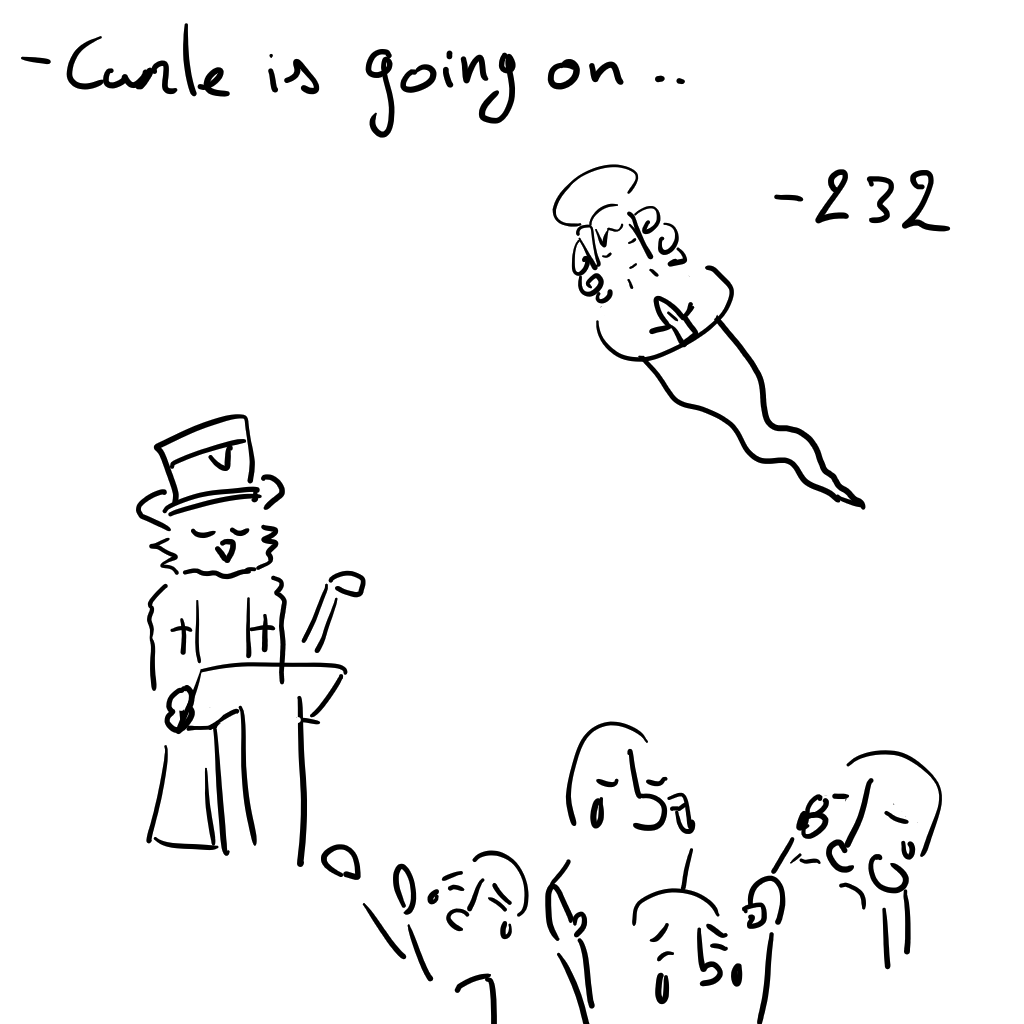 - Carle is going on ..
- 232